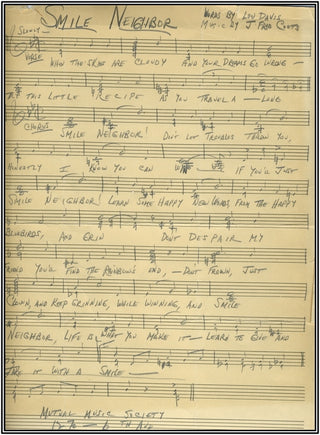 SMILE NEIGHBOR
WORDS BY LOU DAVIS
MUSIC BY J FRED COOTS
SLOWLY
VERSE
WHEN THE SKIES ARE CLOUDY AND YOUR DREAMS GO WRONG -
TRY THIS LITTLE RECIPE AS YOU TRAVEL A - LONG
CHORUS
SMILE NEIGHBOR! DON'T LET TROUBLES TROUBLE YOU,
HONESTLY I KNOW YOU CAN WIN IF YOU'LL JUST
SMILE NEIGHBOR! LEARN SOME HAPPY NEW WORDS, FROM THE HAPPY
BLUEBIRDS, AND GRIN DON'T DESPAIR MY
FRIEND YOU'LL FIND THE RAINBOWS END, - DON'T FROWN, JUST
CLOWN, AND KEEP GRINNING, WHILE WINNING, AND SMILE
NEIGHBOR, LIFE IS WHAT YOU MAKE IT - LEARN TO GIVE AND
TAKE IT WITH A SMILE -
MUTUAL MUSIC SOCIETY
TH AVE